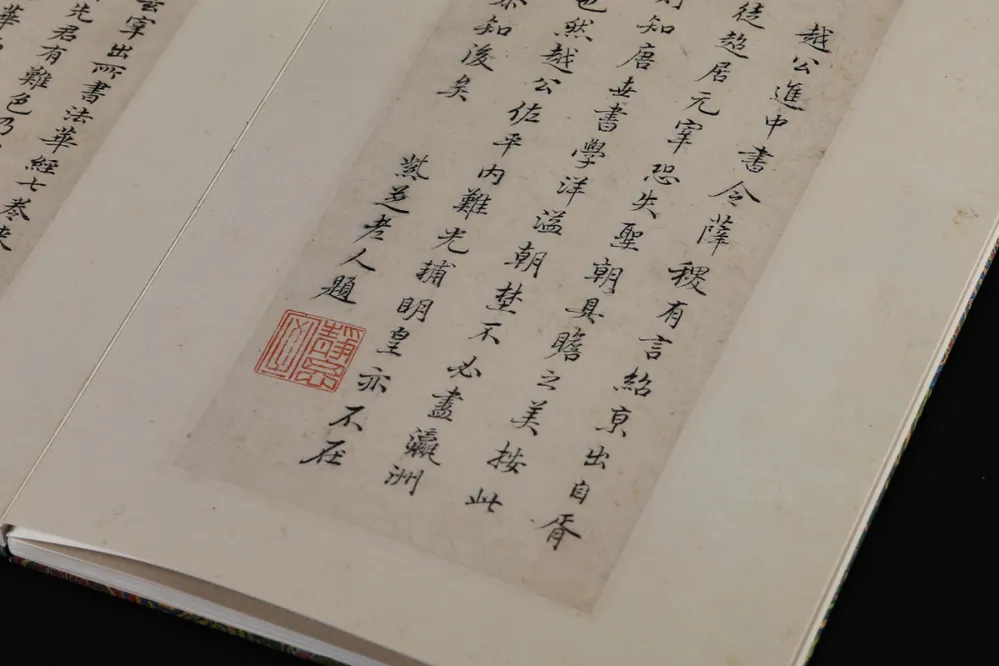 越公進中書令薛稷有言紹京出自胥
徒超居元宰恐失聖朝具瞻之美按此
則知唐世書學洋溢朝埜不必盡瀛洲
也然越公佐平內難光輔明皇亦不在
知後矣
紫芝老人題
宰出所書法華經七卷
先君有難色乃
華